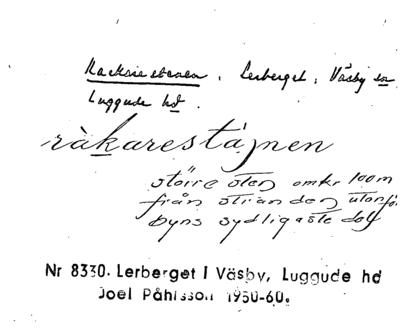 Rackarestenen, Lerberget, Väsby sn
Luggude hd.
ràkarestájnen
större sten omkr 100m
från stranden utanför
byns sydligaste del
Nr 8330. Lerberget i Väsby, Luggude hd
Joel Påhlsson 1950-60.